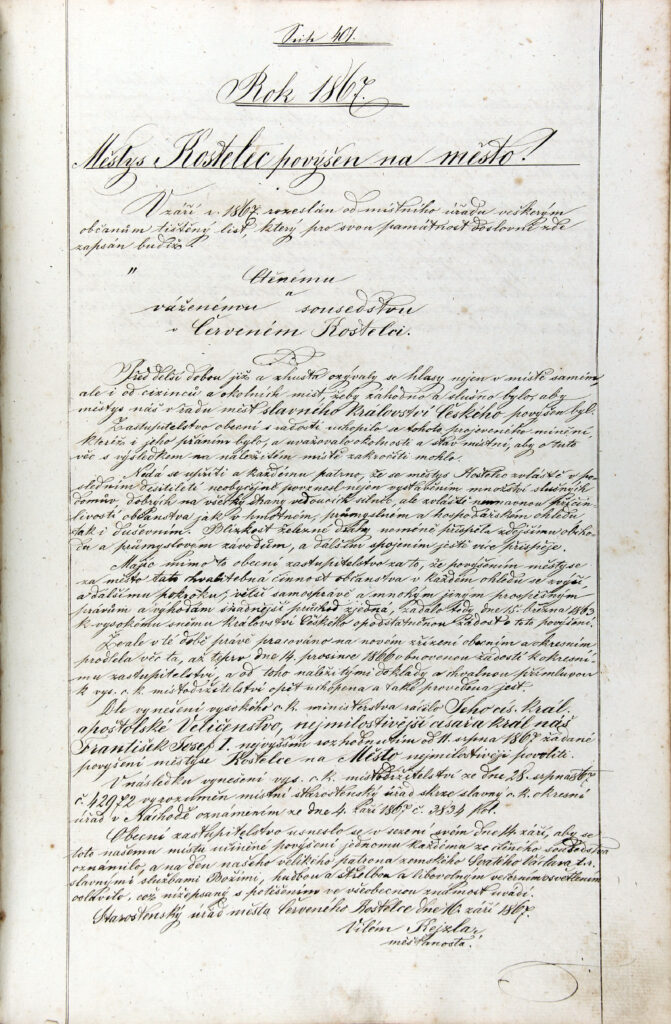 Seite 401.
Rok 1867.
Městys Kostelec povýšen na město!
V září r. 1867 rozeslán od místního úřadu veškerým
občanům tištěný list, který pro svou památnost doslovně zde
zapsán budiž:
"Ctěnému
a
váženému sousedstvu
v Červeném Kostelci.
Před delší dobou již a zhusta ozývaly se hlasy nejen v místě samém
ale i od cizinců a okolních míst, žeby záhodno a slušno bylo, aby
městys náš v řadu měst slavného království Českého povýšen byl.
Zastupitelstvo obecní s radostí uchopilo a tohoto projeveného mínění,
kteréž i jeho přáním bylo, a uvažovalo okolnosti a stav místní, aby o tuto
věc s výsledkem na náležitém místě zakročiti mohlo.
Nedá se upříti a každému patrno, že se městys Kostelec zvláště v po-
sledním desítiletí neobyčejně povznesl nejen vystavěním množství slušných
domův, dobrých na všechny strany vedoucích silnic, ale zvláště
livostí občanstva jak v hmotném, průmyslním a hospodářském ohledu,
tak i duševním. Blízkost železné dráhy neméně přispěla zdejšímu obcho-
du a průmyslovým závodům, a dalším spojením ještě více přispěje.
Majíc mimo to obecní zastupitelstvo za to, že povýšením městyse
za město tato chvalitebná činnost občanstva v každém ohledu se zvýší
a dalšímu pokroku, větší samosprávě a mnohým jiným prospěšným
právům a výhodám snadnější průchod zjedná, žádalo tedy dne 15. března 1863
k vysokému sněmu království Českého o podstatnou žádost o toto povýšení.
Zvale v té době právě pracováno na novém zřízení obecním a okresním
prodlela věc ta, až teprv dne 14. prosince 1866 obnovenou žádostí k okresní-
mu zastupitelstvu, a od toho náležitými doklady a chvalnou přímluvou
k vys. c.k. místodržitelství opět uchopena a také provedena jest.
Dle vynešení vysokého c.k. ministerstva ráčilo Jeho cís. král.
apoštolské Veličenstvo, nejmilostivější císař a král náš
František Josef I. nejvyšším rozhodnutím od 11. srpna 1867 žádané
povýšení městyse Kostelce na Město nejmilostivěji povoliti.
V následku vynešení vys. c.k. místodržitelství ze dne 28. srpna 1867
č. 42972 vyrozuměn místní starostenský úřad skrze slavný c.k. okresní
úřad v Náchodě oznámením ze dne 4. září 1867 č. 3834 pol.
Obecní zastupitelstvo usneslo se v sezení svém dne 14. září, aby se
toto našemu místu učiněné povýšení jednomu každému ze ctěného sousedstva
oznámilo, a na den našeho velikého patrona zemského Svatého Václava t.r.
slavnými službami Božími, hudbou a střelbou a libovolným večerním osvětlením
oslavilo, což nížepsaný s potěšením ve všeobecnou známost uvádí.
Starostenský úřad města Červeného Kostelce dne 16. září 1867.
Vilém Kejzlar,
měšťanosta."